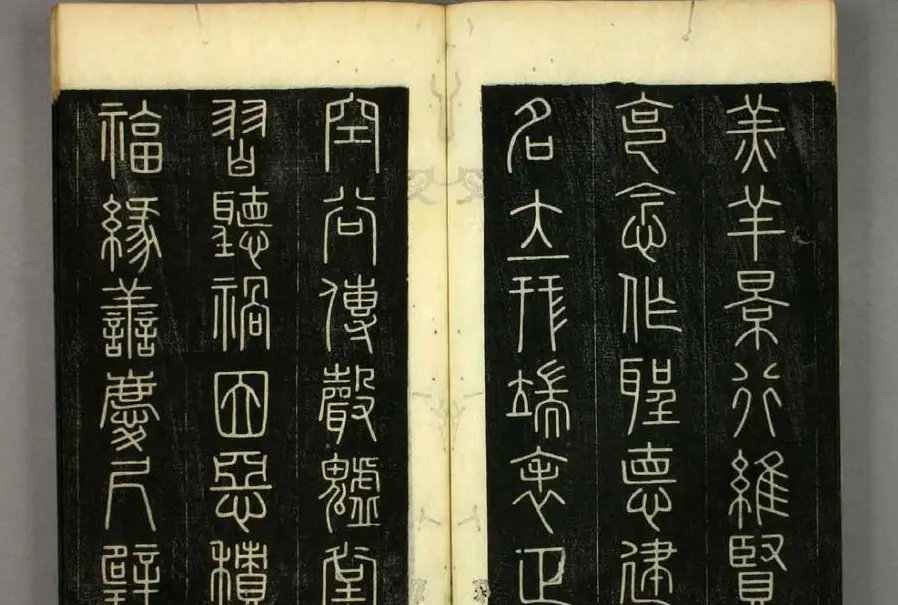 羔羊景行維賢
克念作聖德建
名立形端表正
空谷傳聲虛堂
習聽禍因惡積
福緣善慶尺璧